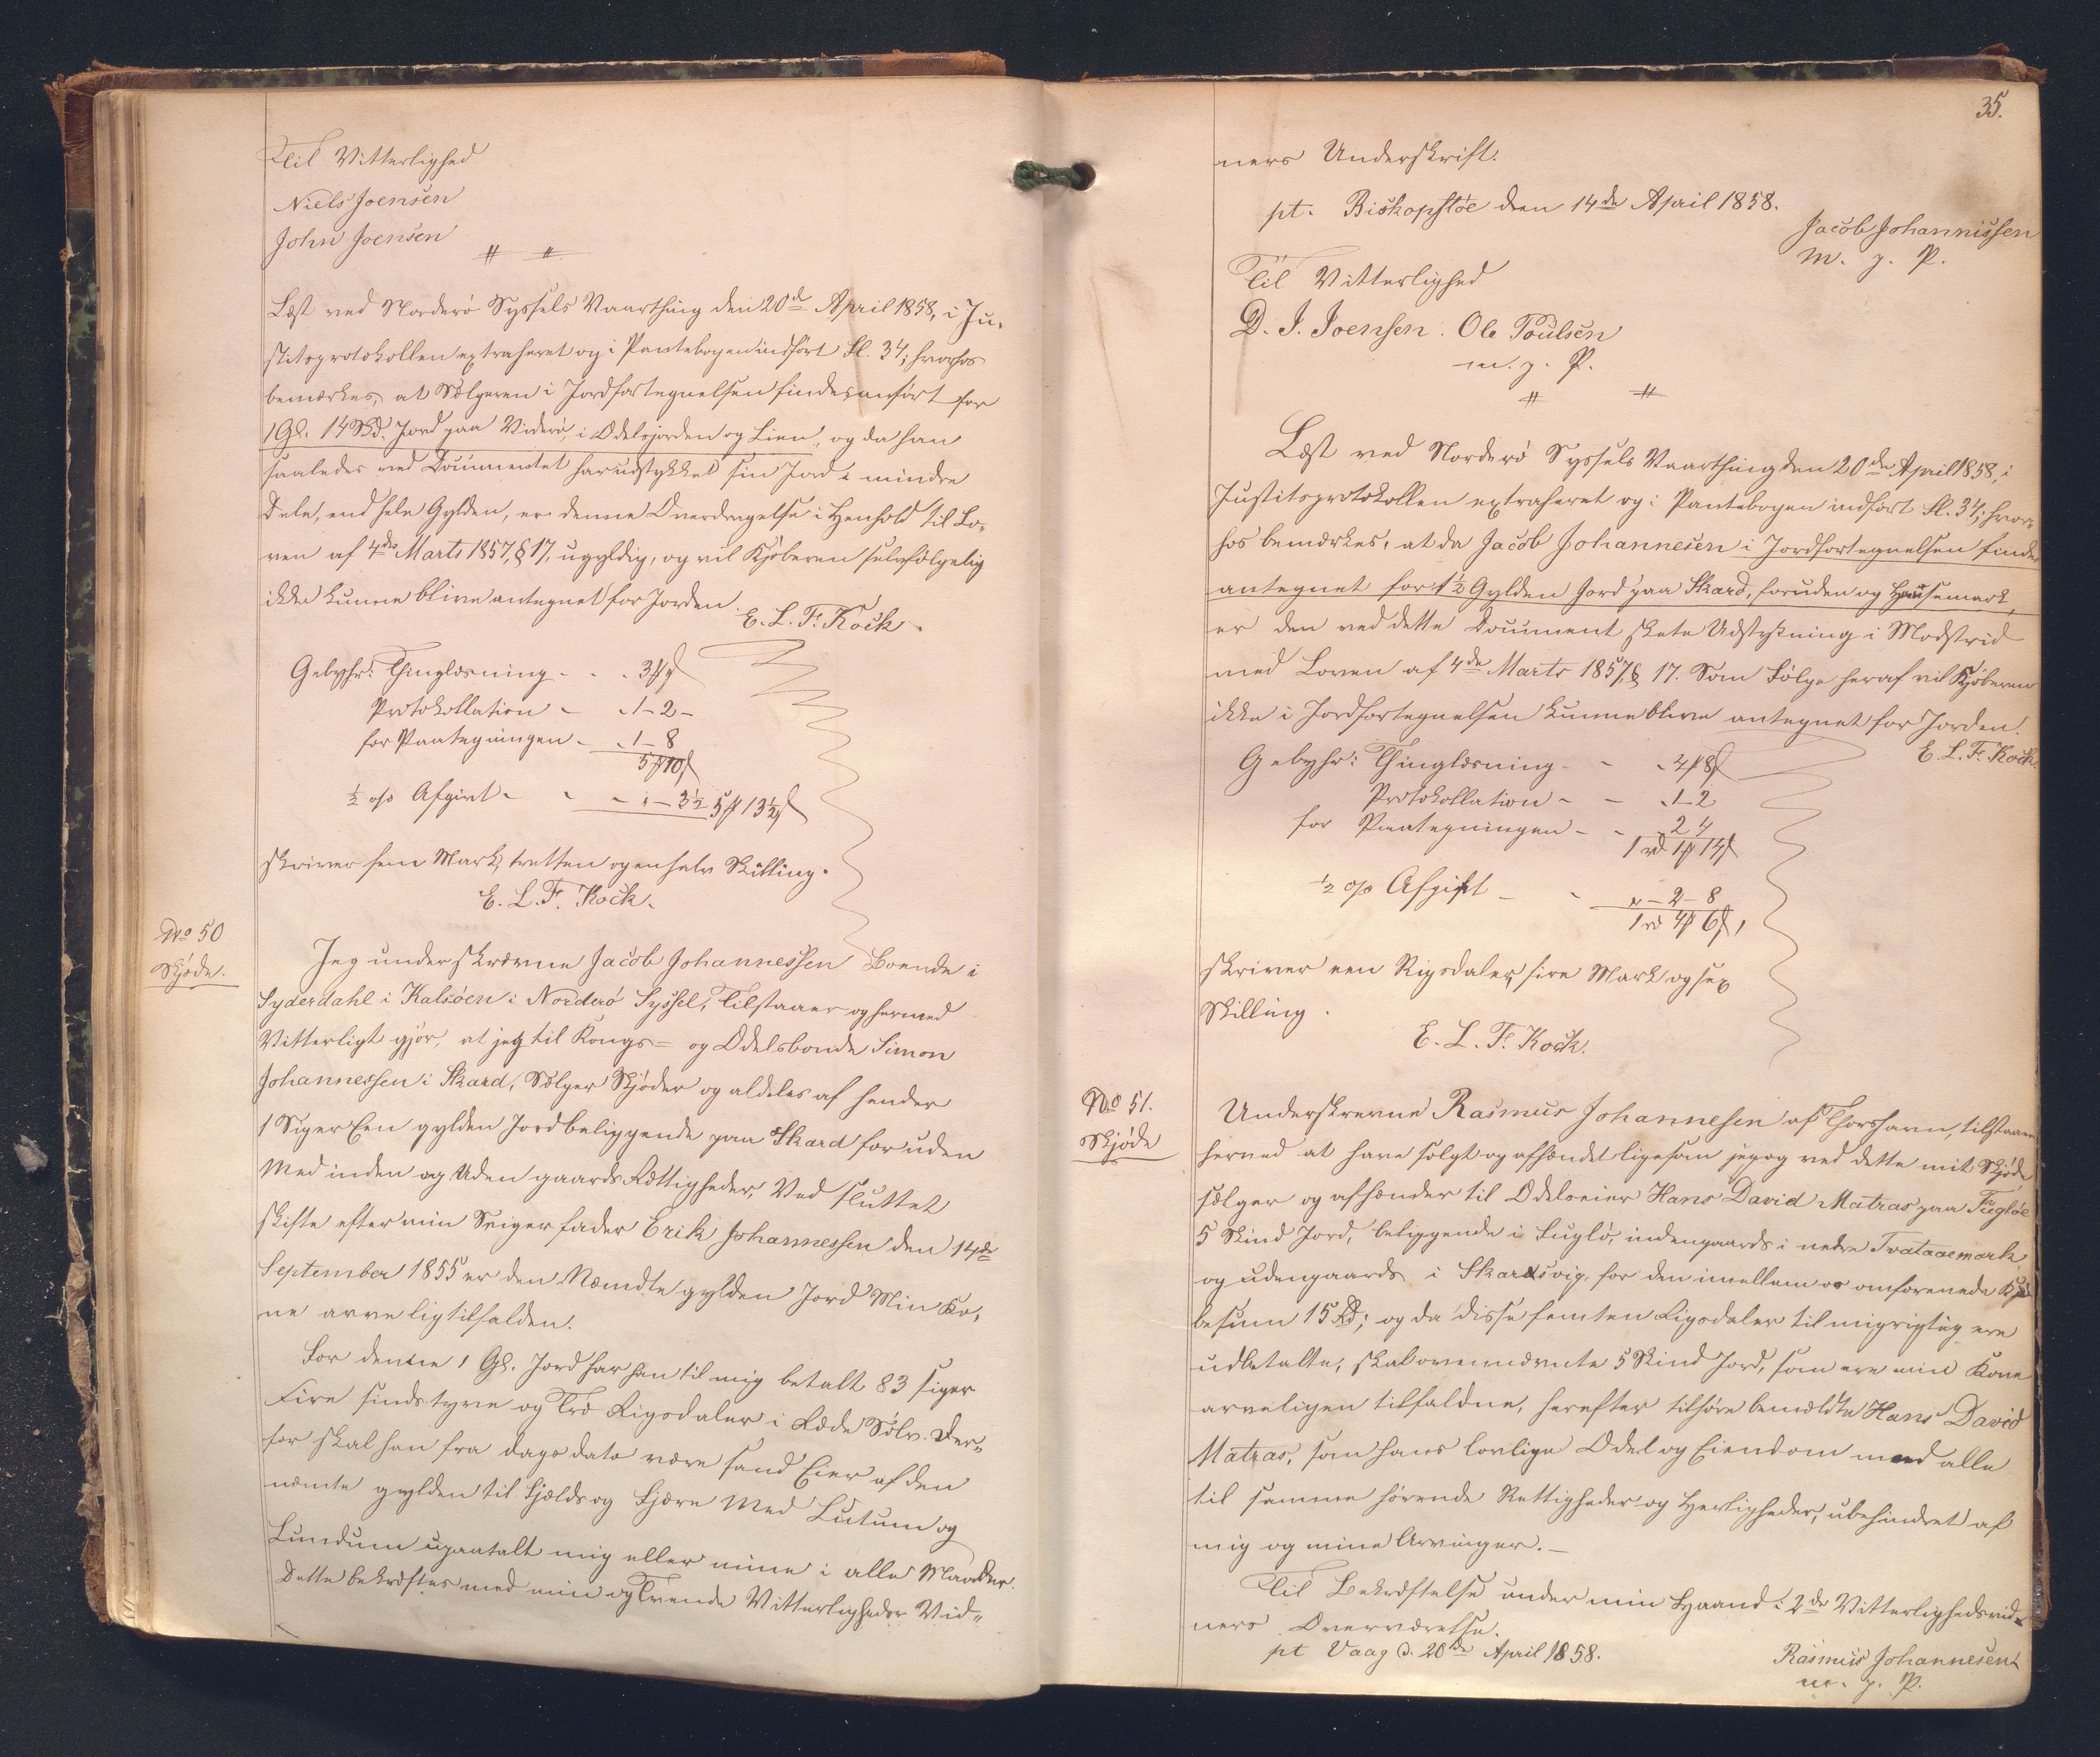 Til Vitterlighed
Niels Joensen
John Joensen
〃 〃
Læst ved Norderø Syssels Vaarthing den 20de April 1858, i Ju-
stitsprotokollen extraheret og i Pantebogen indført Fl. 34; hvorhos
bemærkes, at Sælgeren i Jordfortegnelsen findes anført for
1 Gl. 14 Skd. Jord paa Viderø, i Odelsjorden og Lien, og da han
saaledes ved Documentet har udstykket sin Jord i mindre
Dele, end hele Gylden, er denne Overdragelse i Henhold til Lo-
ven af 4de Marts 1857, § 17, ugyldig, og vil Kjøberen selvfølgelig
ikke kunne blive antegnet for Jorden.
E. L. Fr. Kock.
Gebyhr: Thinglæsning - - 3 ₥
Protokollation - - 1 - 2 -
for Paategningen - - 1 - 8
5 ₥ 10 ß
½ o/o Afgivt - - - 1 - 3½ 5 ₥ 13½ ß
skriver fem Mark, tretten og en halv Skilling.
E. L. Fr. Kock.
No 50
Skjøde.
Jeg underskrævne Jacob Johannessen Boende i
Syderdahl i Kalsøen i Norderø Syssel, Tilstaaer og hermed
Vitterligt gjør, at jeg til Kongs= og Odelsbonde Simon
Johannessen i Skard, Sælger Skjøder og aldeles af hender
1 Siger Een gylden Jord beliggende paa Skard for uden
Med inden og Uden gaards Rættigheder, Ved sluttet
skifte efter min Sviger fader Erik Johannessen den 14de
September 1855 er den Næmdte gylden Jord Min Ko-
ne arvelig tilfalden.
For denne 1 Gl. Jord har han til mig betalt 83 siger
Fire sinds tyve og Tre Rigsdaler i Rede Sølv. Der-
for skal han fra dags dato være sand Eier af den
nemte gylden til Fjelds og Fjære Med Lutum og
Lundum upaatalt mig eller mine i alle Maader.
Dette bekræftes med min og Tvende Vitterligheds Vid-
35.
ners Underskrift.
pt. Biskopstøe den 14de April 1858.
Jacob Johannissen
m. g. P.
Til Vitterlighed
D. J. Joensen. Ole Poulsen
m. g. P.
〃 〃
Læst ved Norderø Syssels Vaarthing den 20de April 1858, i
Justitsprotokollen extraheret og i Pantebogen indført Fl. 34; hvor-
hos bemærkes, at da Jacob Johannesen i Jordfortegnelsen findes
antegnet for 1½ Gylden Jord paa Skard, foruden og Husemark,
er den ved dette Document skete Udstykning i Modstrid
med Loven af 4de Marts 1857, § 17. Som Følge heraf vil Kjøberen
ikke i Jordfortegnelsen kunne blive antegnet for Jorden.
E. L. Fr. Kock.
Gebyhr: Thinglæsning - - 4 ₥ 8 ß
Protokollation - - 1 - 2
for Paategningen - - 2 4
1 rd 1 ₥ 14 ß
½ o/o Afgift - - 〃 - 2 - 8
1 rd 4 ₥ 6 ß,
skriver een Rigsdaler, fire Mark og sex
Skilling.
E. L. Fr. Kock.
No 51.
Skjøde
Underskrevne Rasmus Johannesen af Thorshavn, tilstaaer
herved at have solgt og afhændet ligesom jeg og ved dette mit Skjøde
sælger og afhænder til Odelseier Hans David Matras paa Fugløe
5 Skind Jord, beliggende i Fuglø, indengaards i nedre Tvataaemark
og udengaards i Skaradsvig, for den imellem os omforenede Kjø-
besum 15 Rd; og da disse femten Rigsdaler til mig rigtig ere
udbetalte, skal ovennævnte 5 Skind Jord, som ere min Kone
arveligen tilfaldne, herefter tilhøre bemældte Hans David
Matras, som hans lovlige Odel og Eiendom med alle
til samme hørende Rettigheder og Herligheder, ubehindret af
mig og mine Arvinger. -
Til Bekræftelse under min Haand i 2de Vitterlighedsvid-
ners Overværelse.
pt Vaag d. 20de April 1858.
Rasmus Johannesen
m. g. P.